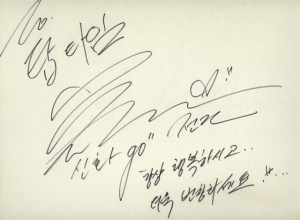 To.
탑 타임
신화 go"
전진
항상 행복하시고..
더욱 번창하세요!!...